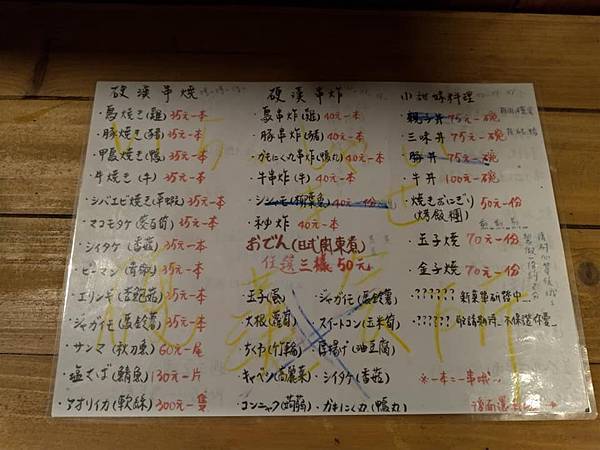 硬漢串燒
・鳥焼き(雞) 35元一本
・豚焼き(豬) 35元一本
・甲鳥焼き(鴨) 35元一本
・牛焼き(牛) 35元一本
・シバエビ焼き(草蝦) 35元一本
・マコモタケ(茭白筍) 35元一本
・シイタケ(香菇) 35元一本
・ピーマン(青椒) 35元一本
・エリンギ(杏鮑菇) 35元一本
・ジャガイモ(馬鈴薯) 35元一本
・サンマ(秋刀魚) 60元一尾
・塩さば(鯖魚) 130元一片
・アオリイカ(軟絲) 300元一隻
硬漢串炸
・鳥串炸(雞) 40元一本
・豚串炸(豬) 40元一本
・かもにく丸串炸(鴨丸) 40元一本
・牛串炸(牛) 40元一本
・シシャモ(柳葉魚) 40元一份
・秘炸 40元一本
おでん(日式關東煮)
任選三樣50元
・玉子(蛋)
・大根(蘿蔔)
・ちくわ(竹輪)
・キャベツ(高麗菜)
・コンニャク(蒟蒻)
・ジャガイモ(馬鈴薯)
・スイートコン(玉米筍)
・厚揚げ(油豆腐)
・シイタケ(香菇)
・かもにく丸(鴨丸)
小甜妹料理
・親子丼 75元一碗
・三味丼 75元一碗
・豚丼 75元一碗
・牛丼 100元一碗
・焼きおにぎり 50元一份
(烤飯糰)
・玉子燒 70元一份
・金子燒 70元一份
・?????? 新菜單研發中
・?????? 敬請期待 不保證好賣
※一本=一串哦